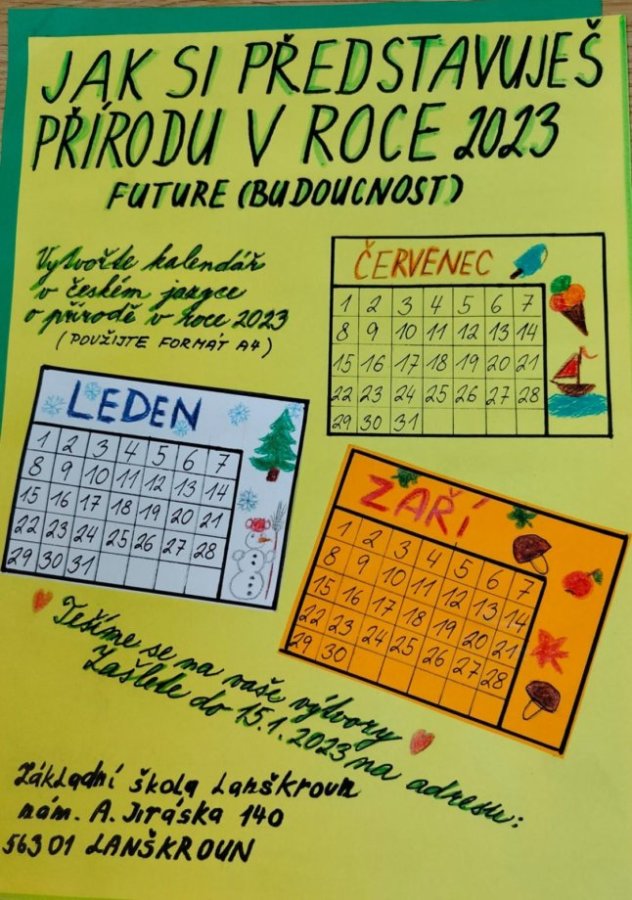 JAK SI PŘEDSTAVUJEŠ
PŘÍRODU V ROCE 2023
FUTURE (BUDOUCNOST)
Vytvořte kalendář
v českém jazyce
o přírodě v roce 2023
(POUŽIJTE FORMÁT A4)
ČERVENEC
1 2 3 4 5 6 7
8 9 10 11 12 13 14
15 16 17 18 19 20 21
22 23 24 25 26 27 28
29 30 31
LEDEN
1 2 3 4 5 6 7
8 9 10 11 12 13 14
15 16 17 18 19 20 21
22 23 24 25 26 27 28
29 30 31
ZAŘÍ
1 2 3 4 5 6 7
8 9 10 11 12 13 14
15 16 17 18 19 20 21
22 23 24 25 26 27 28
29 30
Těšíme se na vaše výtvory
Zašlete do 15.1.2023 na adresu:
Základní škola Lanškroun
nám. A. Jiráska 140
56301 LANŠKROUN